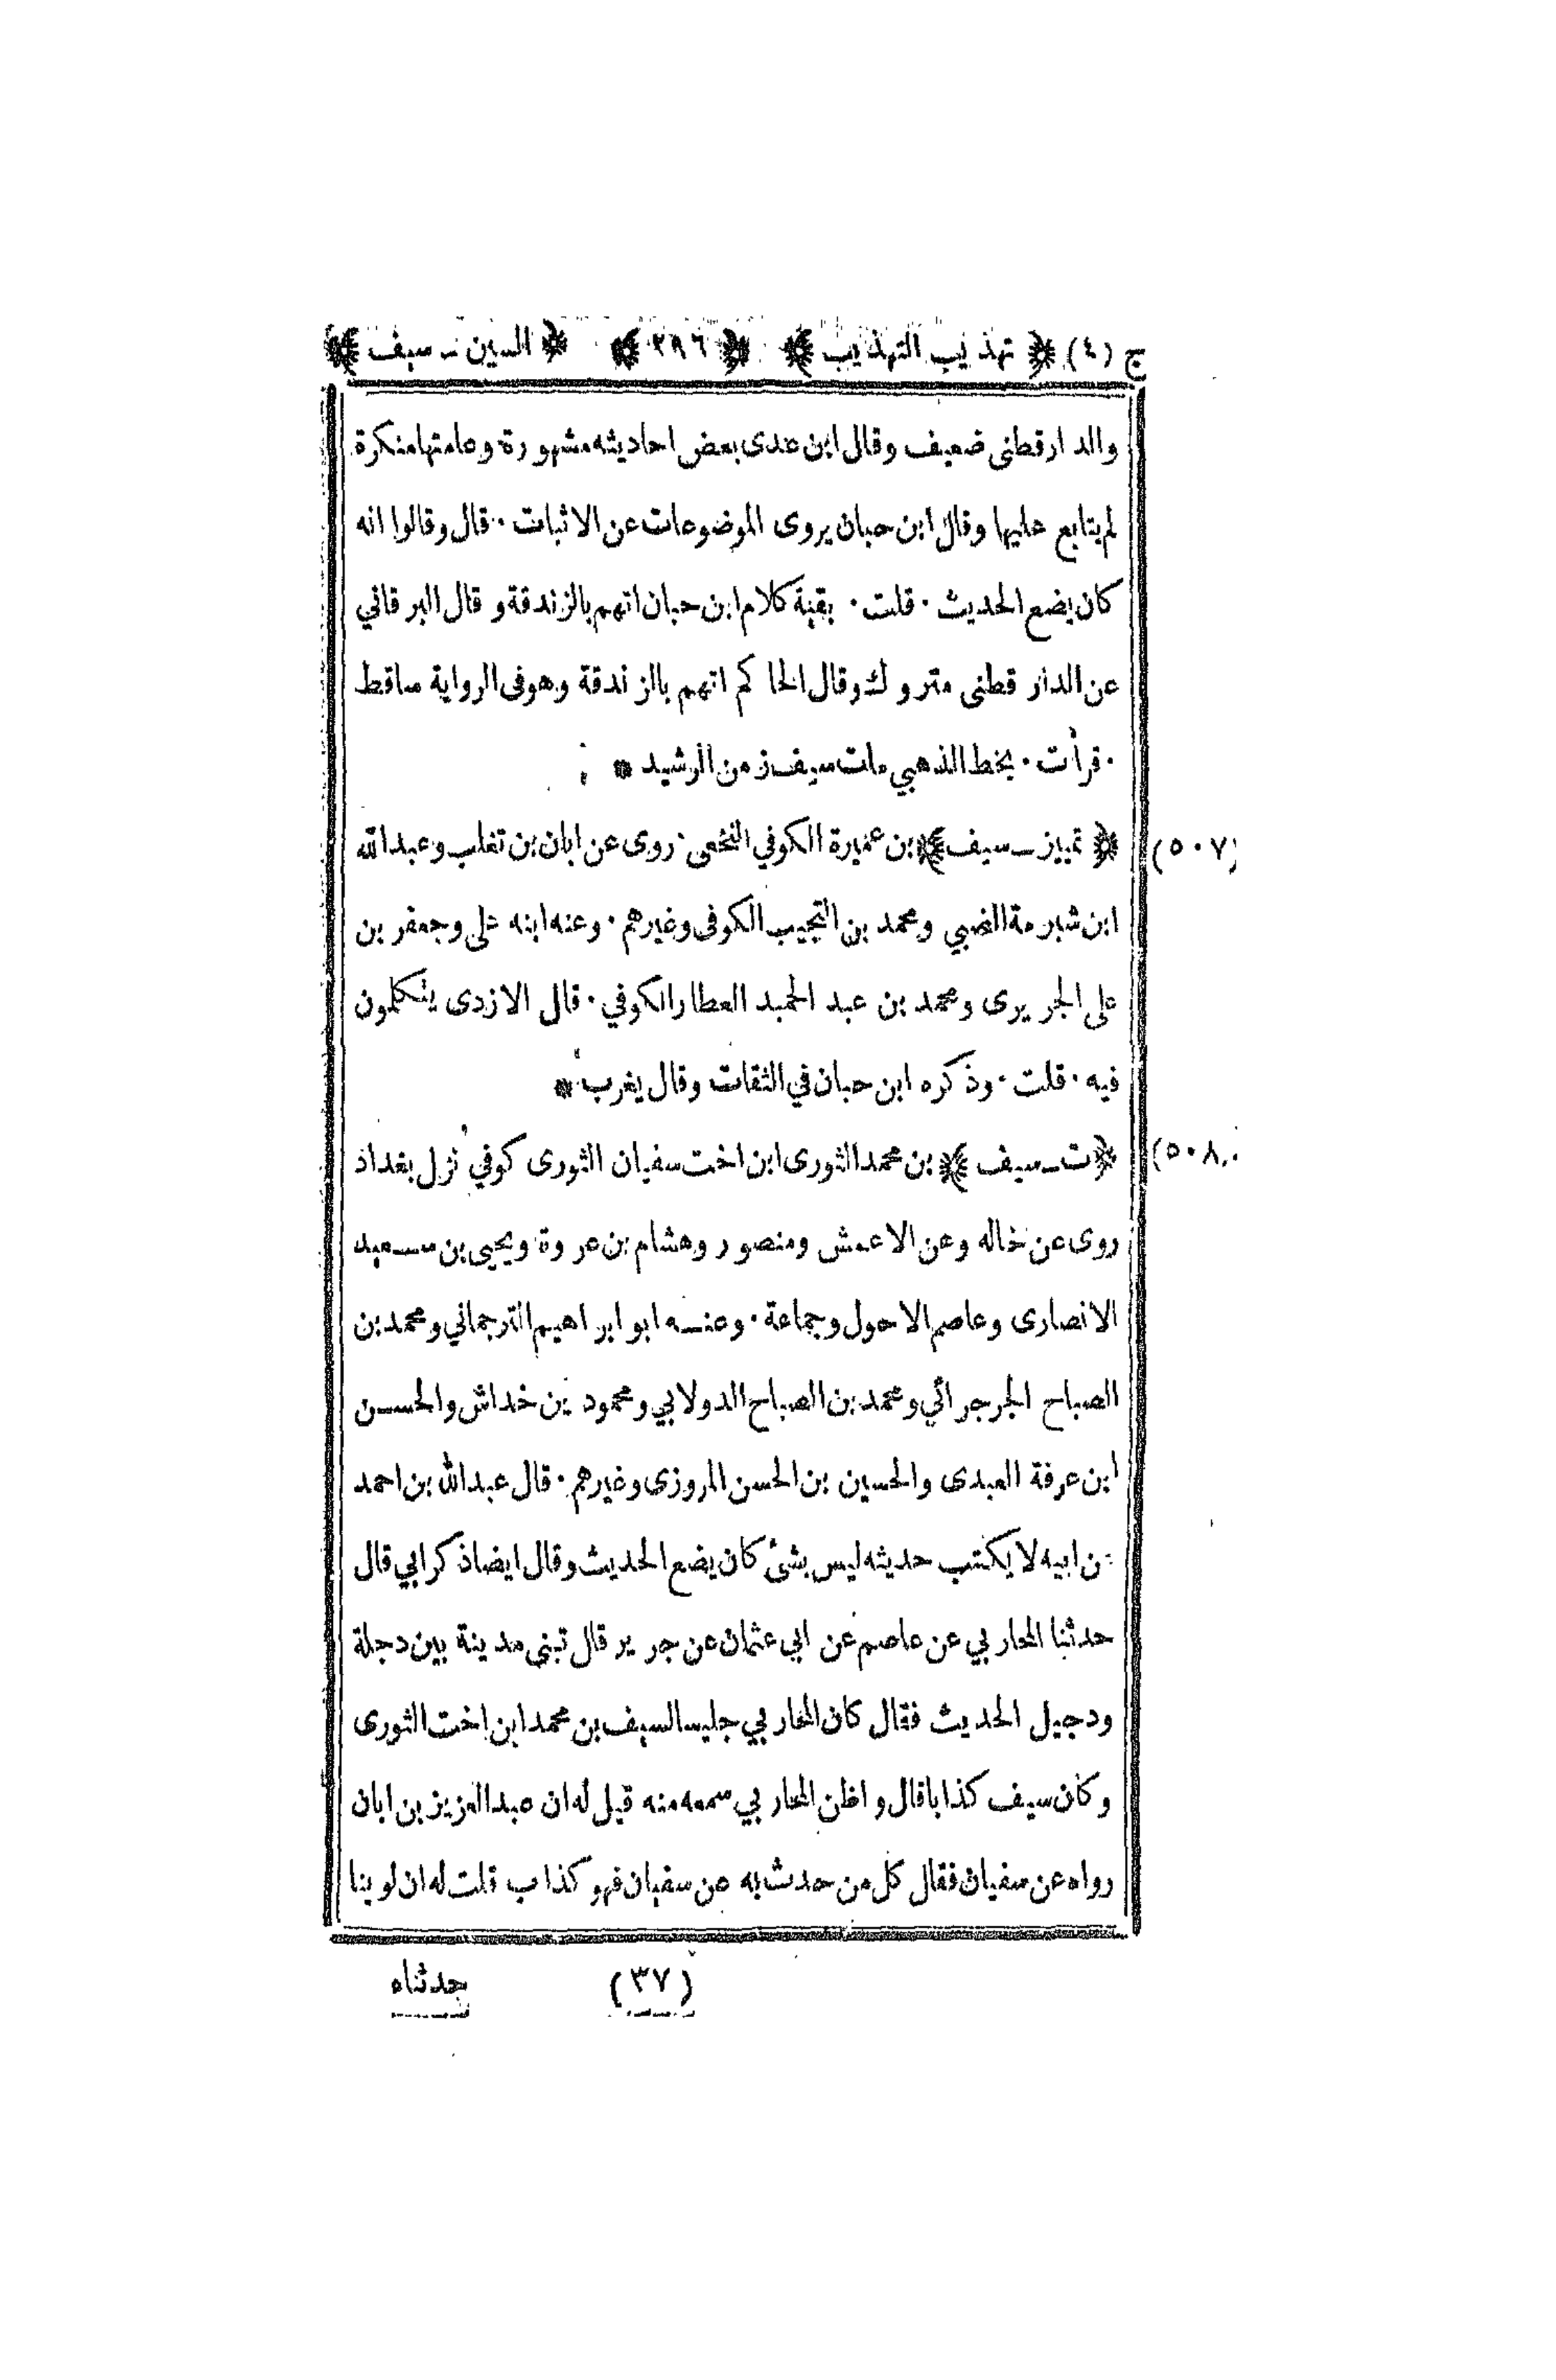 ج (٤) ﴿ تهذيب التهذيب ﴾ ﴿ ٢٩٦ ﴾ ﴿ السين ــ سيف ﴾
والدارقطنى ضعيف وقال ابن عدى بعض احاديثه مشهورة وعامتها منكرة
لم يتابع عليها وقال ابن حبان يروى الموضوعات عن الاثبات · قال وقالوا انه
كان يضع الحديث · قلت · بقية كلام ابن حبان اتهم بالزندقة و قال البرقاني
عن الدارقطنى متروك وقال الحاكم اتهم بالزندقة وهو فى الرواية ساقط
· قرأت · بخط الذهبي مات سيف زمن الرشيد *
(٥٠٧) ﴿ تمييز ــ سيف ﴾ بن عميرة الكوفي النخعى · روى عن ابان بن تغلب وعبد الله
ابن شبرمة الضبي ومحمد بن النجيب الكوفى وغيرهم · وعنه ابنه على وجعفر بن
على الجريرى ومحمد بن عبد الحميد العطار الكوفي · قال الازدى يتكلمون
فيه · قلت · وذكره ابن حبان في الثقات وقال يغرب *
(٥٠٨) ﴿ ت ــ سيف ﴾ بن محمد الثورى ابن اخت سفيان الثورى كوفي نزل بغداد
روى عن خاله وعن الاعمش ومنصور وهشام بن عروة ويحيى بن سعيد
الانصارى وعاصم الاحول وجماعة · وعنه ابو ابراهيم الترجماني ومحمد بن
الصباح الجرجرائي ومحمد بن الصباح الدولابي ومحمود بن خداش والحسن
ابن عرفة العبدى والحسين بن الحسن المروزى وغيرهم · قال عبد الله بن احمد
عن ابيه لا يكتب حديثه ليس بشئ كان يضع الحديث وقال ايضا ذكر ابي قال
حدثنا المحاربي عن عاصم عن ابي عثمان عن جرير قال تبنى مدينة بين دجلة
ودجيل الحديث فقال كان المحاربي جليسا لسيف بن محمد ابن اخت الثورى
وكان سيف كذابا قال و اظن المحاربي سمعه منه قيل له ان عبد العزيز بن ابان
رواه عن سفيان فقال كل من حدث به عن سفيان فهو كذاب قلت له ان لوينا
(٣٧) حدثناه